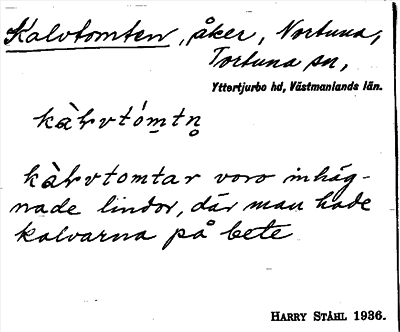 Kalvtomten, åker, Nortuna,
Tortuna sn,
Yttertjurbo hd, Västmanlands län.
kàɫvtómtn̥
kàɫvtomtar voro inhäg-
nade lindor, där man hade
kalvarna på bete
HARRY STÅHL 1936.